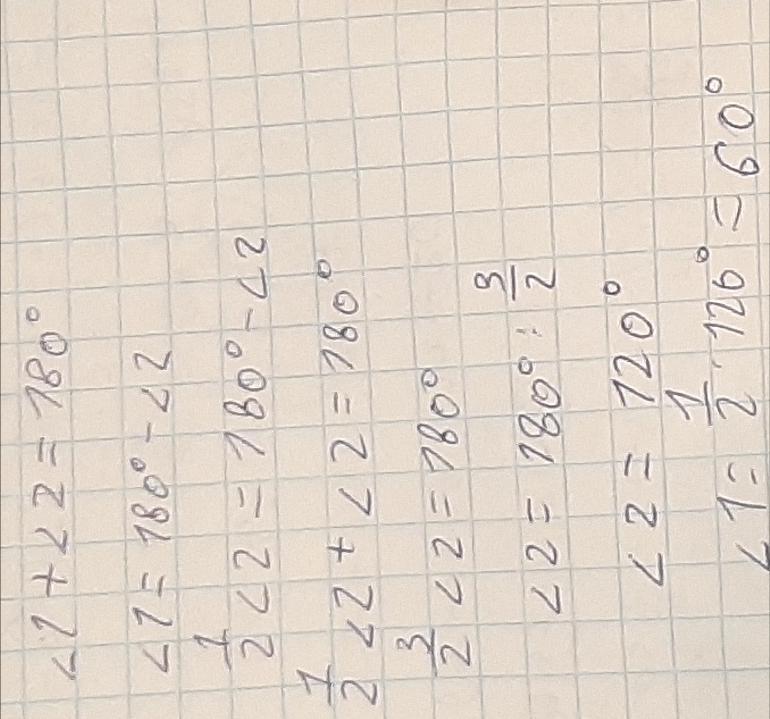 ∠1+∠2=180°
∠1=180°-∠2
1/2 ∠2=180°-∠2
1/2 ∠2+∠2=180°
3/2 ∠2=180°
∠2=180°:3/2
∠2=120°
∠1=1/2·120°=60°